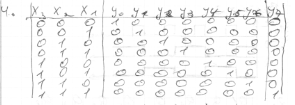 4. X₃ X₂ X₁ Y₀ Y₁ Y₂ Y₃ Y₄ Y₅ Y₆ Y₇
0 0 0 1 0 0 0 0 0 0 0
0 0 1 0 1 0 0 0 0 0 0
0 1 0 0 0 1 0 0 0 0 0
0 1 1 0 0 0 1 0 0 0 0
1 0 0 0 0 0 0 1 0 0 0
1 0 1 0 0 0 0 0 1 0 0
1 1 0 0 0 0 0 0 0 1 0
1 1 1 0 0 0 0 0 0 0 1